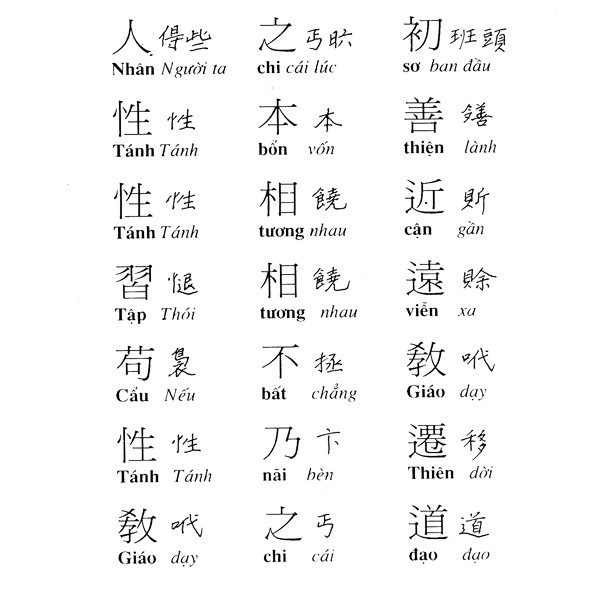 人 得些 之 丐𣅶 初 班頭
Nhân Người ta chi cái lúc sơ ban đầu
性 性 本 本 善
Tánh Tánh bổn vốn thiện lành
性 性 相 饒 近 𧵆
Tánh Tánh tương nhau cận gần
習 相 饒 遠 賒
Tập Thói tương nhau viễn xa
苟 裊 不 拯 教 𠰺
Cẩu Nếu bất chẳng Giáo dạy
性 性 乃 卞 遷 移
Tánh Tánh nãi bèn Thiên dời
教 𠰺 之 丐 道 道
Giáo dạy chi cái đạo đạo